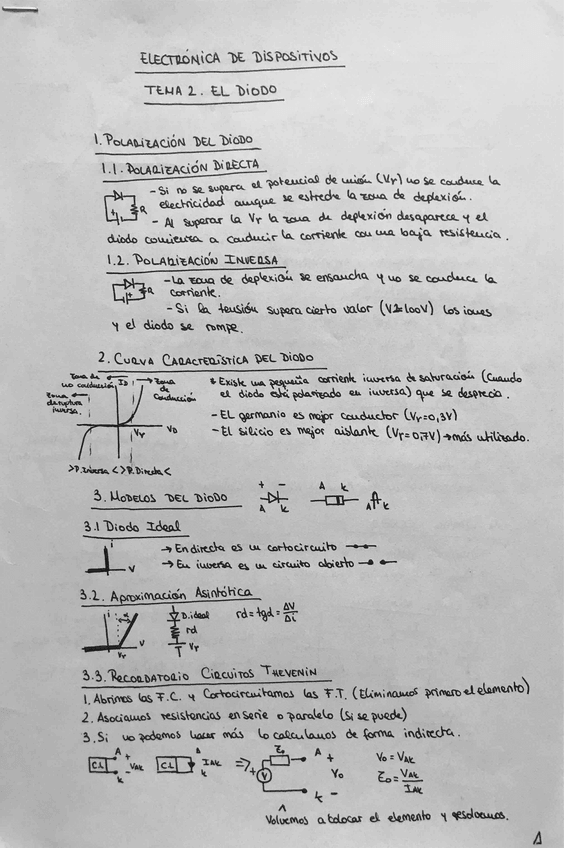 ELECTRÓNICA DE DISPOSITIVOS
TEMA 2. EL DIODO
1. POLARIZACIÓN DEL DIODO
1.1. POLARIZACIÓN DIRECTA
- Si no se supera el potencial de unión (Vr) no se conduce la
electricidad aunque se estrecte la zona de deplexión.
R
- Al superar la Vr la zona de deplexión desaparece y el
diodo comienza a conducir la corriente con una baja resistencia.
1.2. POLARIZACIÓN INVERSA
- La zona de deplexión se ensancha y no se conduce la
corriente.
R
- Si la tensión supera cierto valor (V≥100V) los iones
y el diodo se rompe.
2. CURVA CARACTERÍSTICA DEL DIODO
Zona de no conducción
ID
Zona de Conducción
Zona de ruptura inversa.
Vr
VD
>P. Inversa < >P. Directa <
* Existe una pequeña corriente inversa de saturación (Cuando
el diodo está polarizado en inversa) que se desprecia.
- El germanio es mejor conductor (Vr=0,3V)
- El silicio es mejor aislante (Vr=0,7V) → más utilizado.
3. MODELOS DEL DIODO
+ -
A K
A K
A K
3.1 Diodo Ideal
i
V
→ En directa es un cortocircuito
→ En inversa es un circuito abierto
3.2. Aproximación Asintótica
i
α
V
Vr
D.ideal
rd
Vr
rd = tgα = ΔV/Δi
3.3. RECORDATORIO CIRCUITOS THEVENIN
1. Abrimos las F.C. y Cortocircuitamos las F.T. (Eliminamos primero el elemento)
2. Asociamos resistencias en serie o paralelo (Si se puede)
3. Si no podemos hacer más lo calculamos de forma indirecta.
C.L A + VAK - K
C.L A IAK K
⇒
Zo A +
+ V Vo
K -
Vo = VAK
Zo = VAK/IAK
Volvemos a colocar el elemento y resolvemos.
1